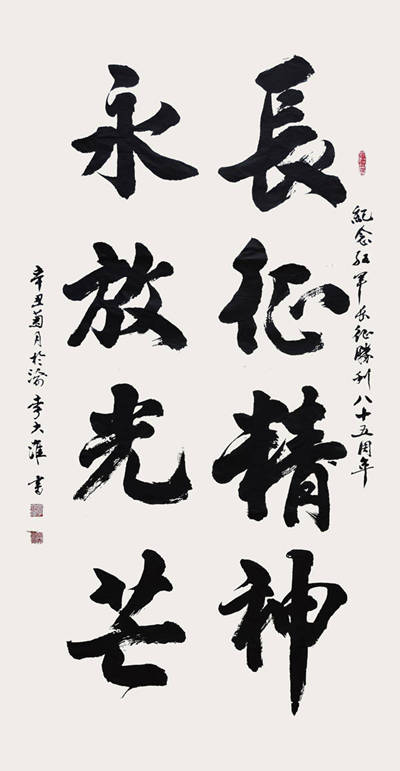 紀念红军长征勝利八十五周年
長征精神
永放光芒
辛丑菊月於渝李大淮書